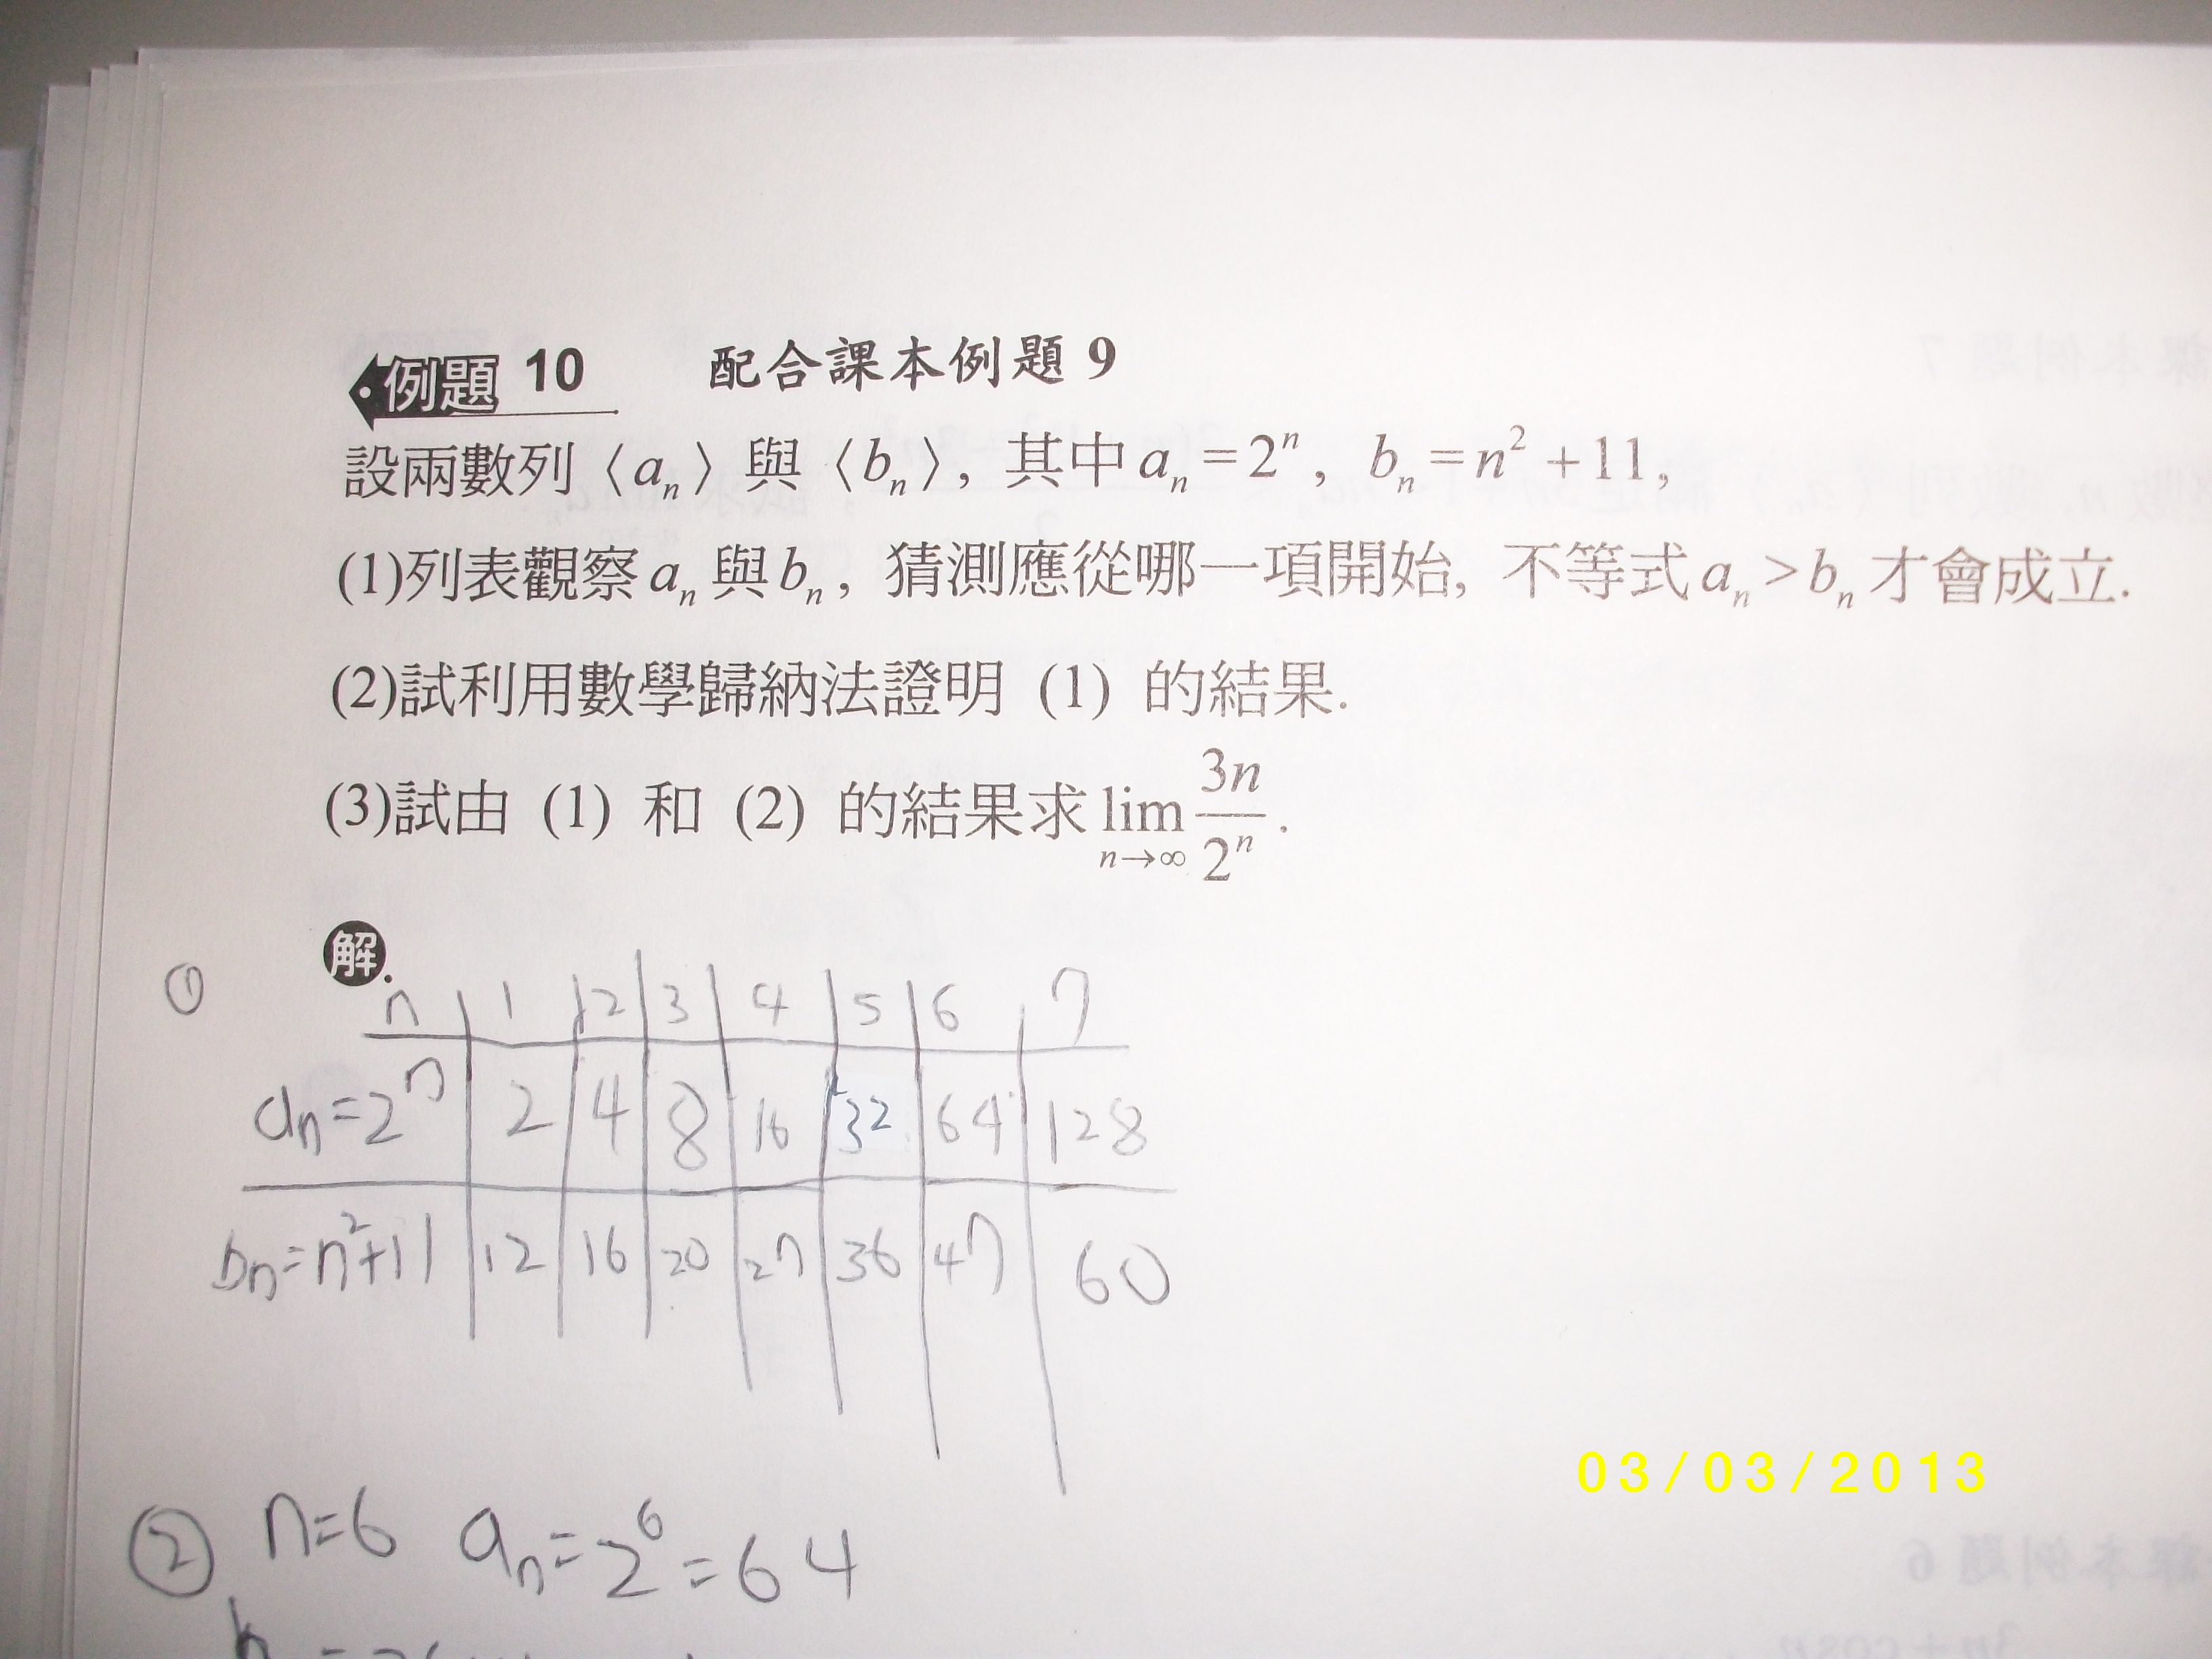 例題 10 配合課本例題 9
設兩數列〈aₙ〉與〈bₙ〉, 其中 aₙ=2ⁿ, bₙ=n²+11,
(1)列表觀察 aₙ 與 bₙ, 猜測應從哪一項開始, 不等式 aₙ>bₙ 才會成立.
(2)試利用數學歸納法證明 (1) 的結果.
(3)試由 (1) 和 (2) 的結果求 lim n→∞ 3n/2ⁿ.
解.
① n 1 2 3 4 5 6 7
aₙ=2ⁿ 2 4 8 16 32 64 128
bₙ=n²+11 12 16 20 27 36 47 60
03/03/2013
② n=6 aₙ=2⁶=64
課本例題 7
課本例題 6
3n+cosn